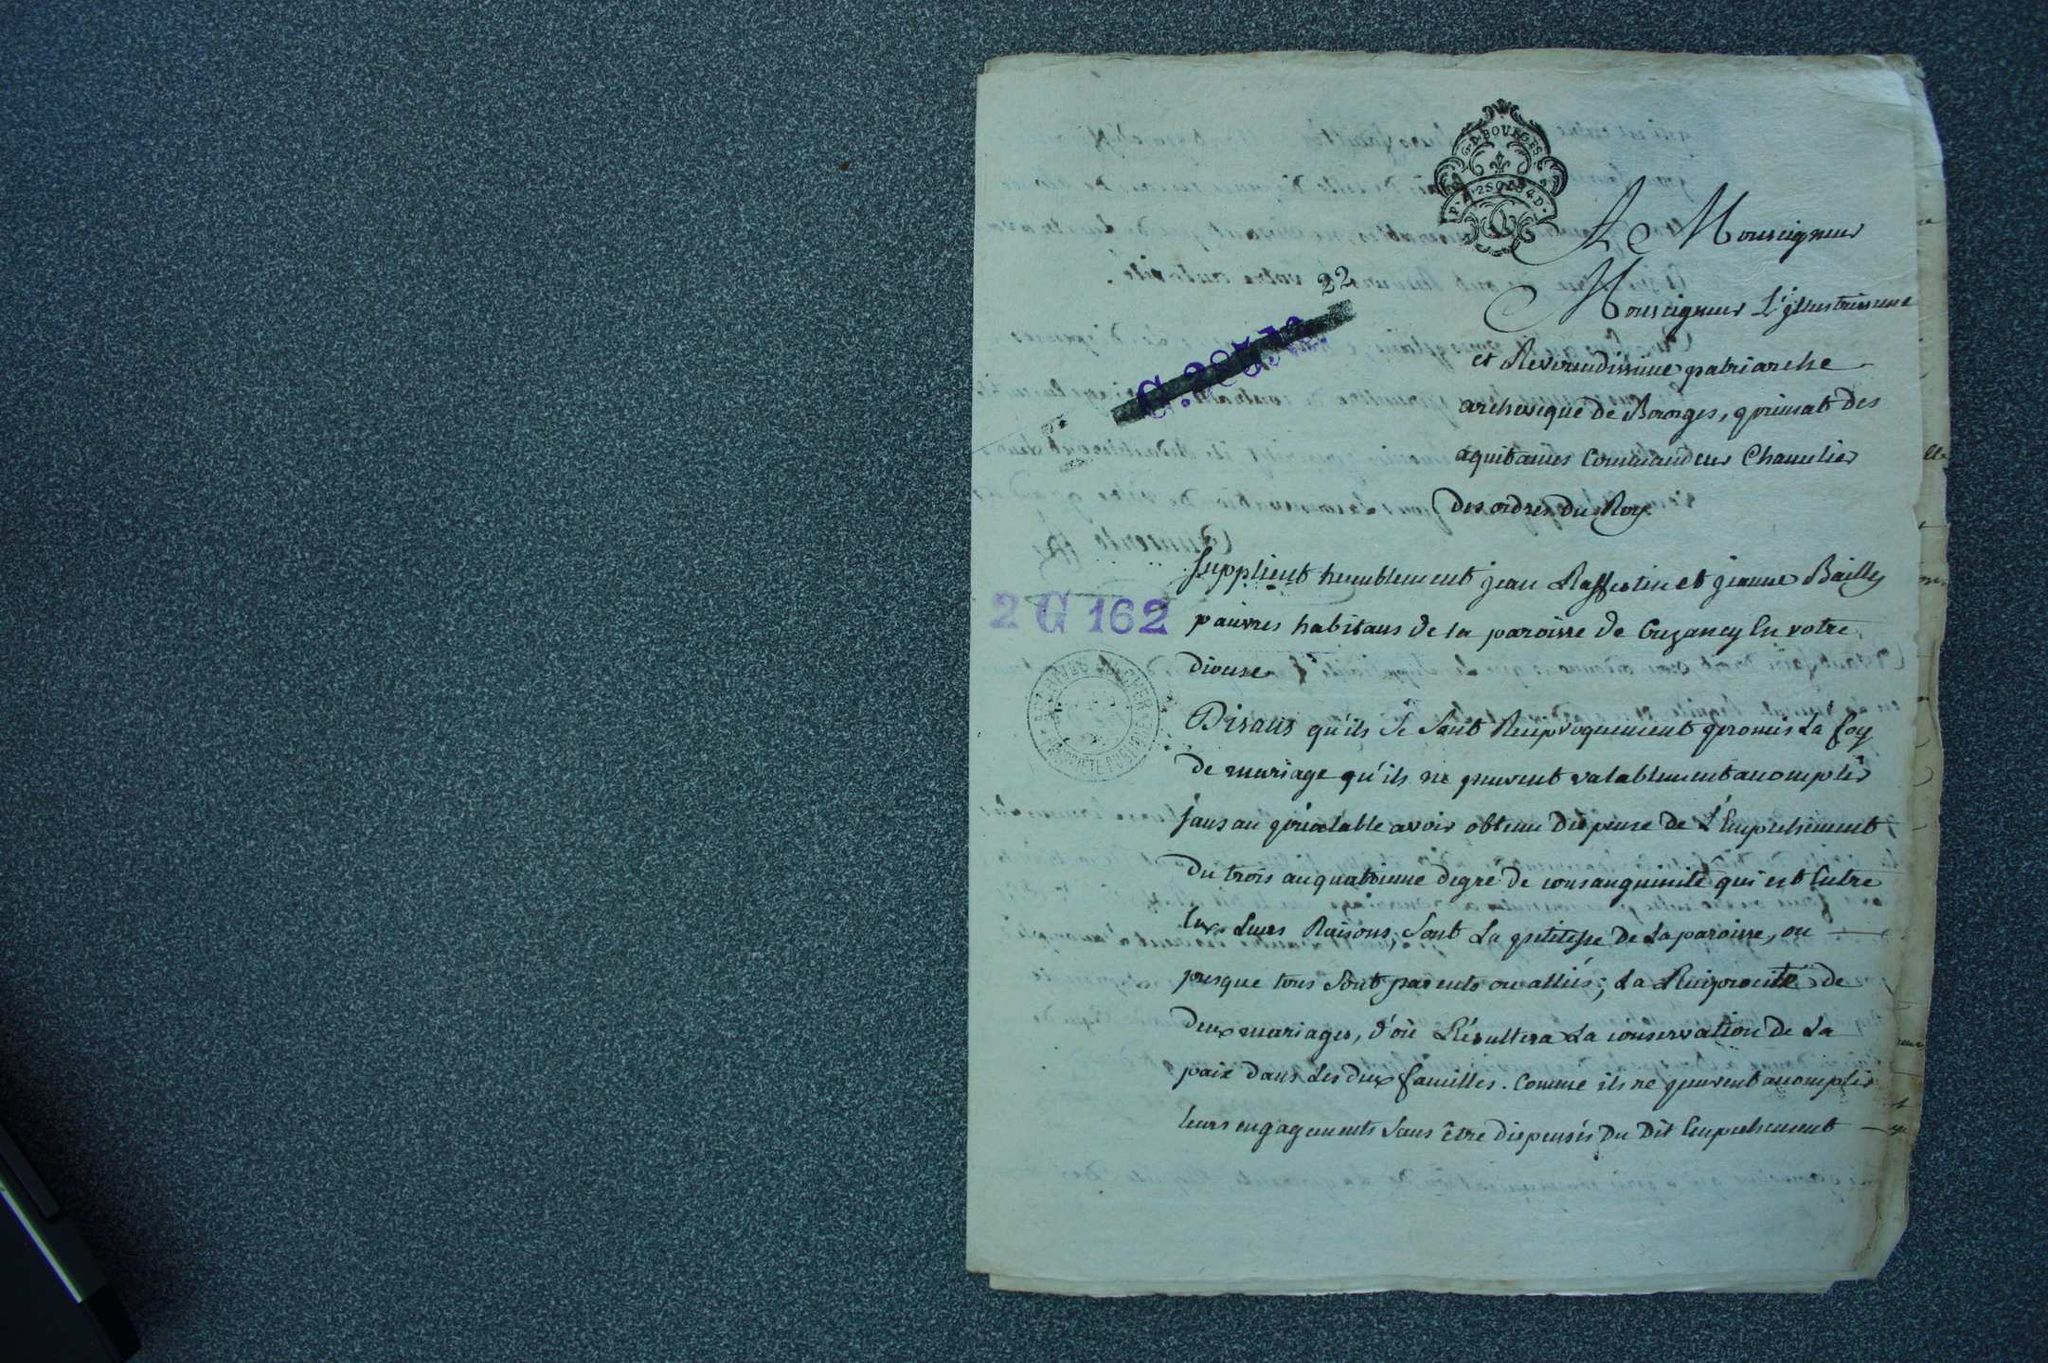 G. D. BOURGES
A Monseigneur
22
Monseigneur L'jllustrissime
et Reverendissime patriarche
archevêque de Bourges, primat des
aquitaines Commandeur Chevalier
des ordres du Roy
Supplient humblement jean Raffestin et jeanne Bailly
2 G 162
pauvres habitans de la paroisse de Crezancy En votre
diocese
Disans qu'ils se sont Reciproquement promis La foy
de mariage qu'ils ne peuvent valablement accomplir
sans au préalable avoir obtenu dispense de L'Empechement
du trois au quatrieme degré de consanguinité qui est Entre
Eux. Leurs Raisons, sont La petitesse de La paroisse, ou
presque tous sont parents ou alliés; La Reciprocité de
deux mariages, d'où Résultera La conservation de La
paix dans Les deux familles. Comme ils ne peuvent accomplir
leurs engagements sans être dispensés Du Dit Empechement